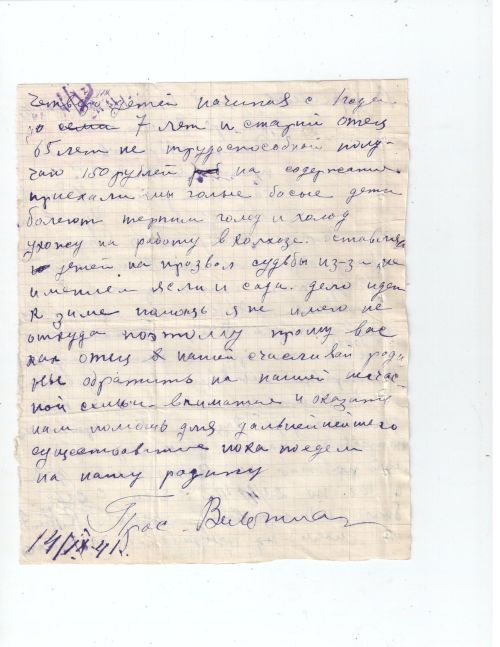 четверо детей начиная с 1 года
и семи 7 лет и старий отец
65 лет не трудоспособной полу-
чаю 150 рублей на содержание
приехали мы голые босые дети
болеют терпим голу и холод
ухожу на работу в колхозе. ставляя
детей на прозвол судьбы из-за не
имением ясли и сада. дело идет
к зиме помощь я не имею не
откуда поэтому прошу вас
как отец в нашей счасливай роди
ны обратить на нашей несчас-
ной семьи внимание и оказать
нам помощь для дальнейнейшего
существование пока поедем
на нашу родину
Прос
14/IX-41.